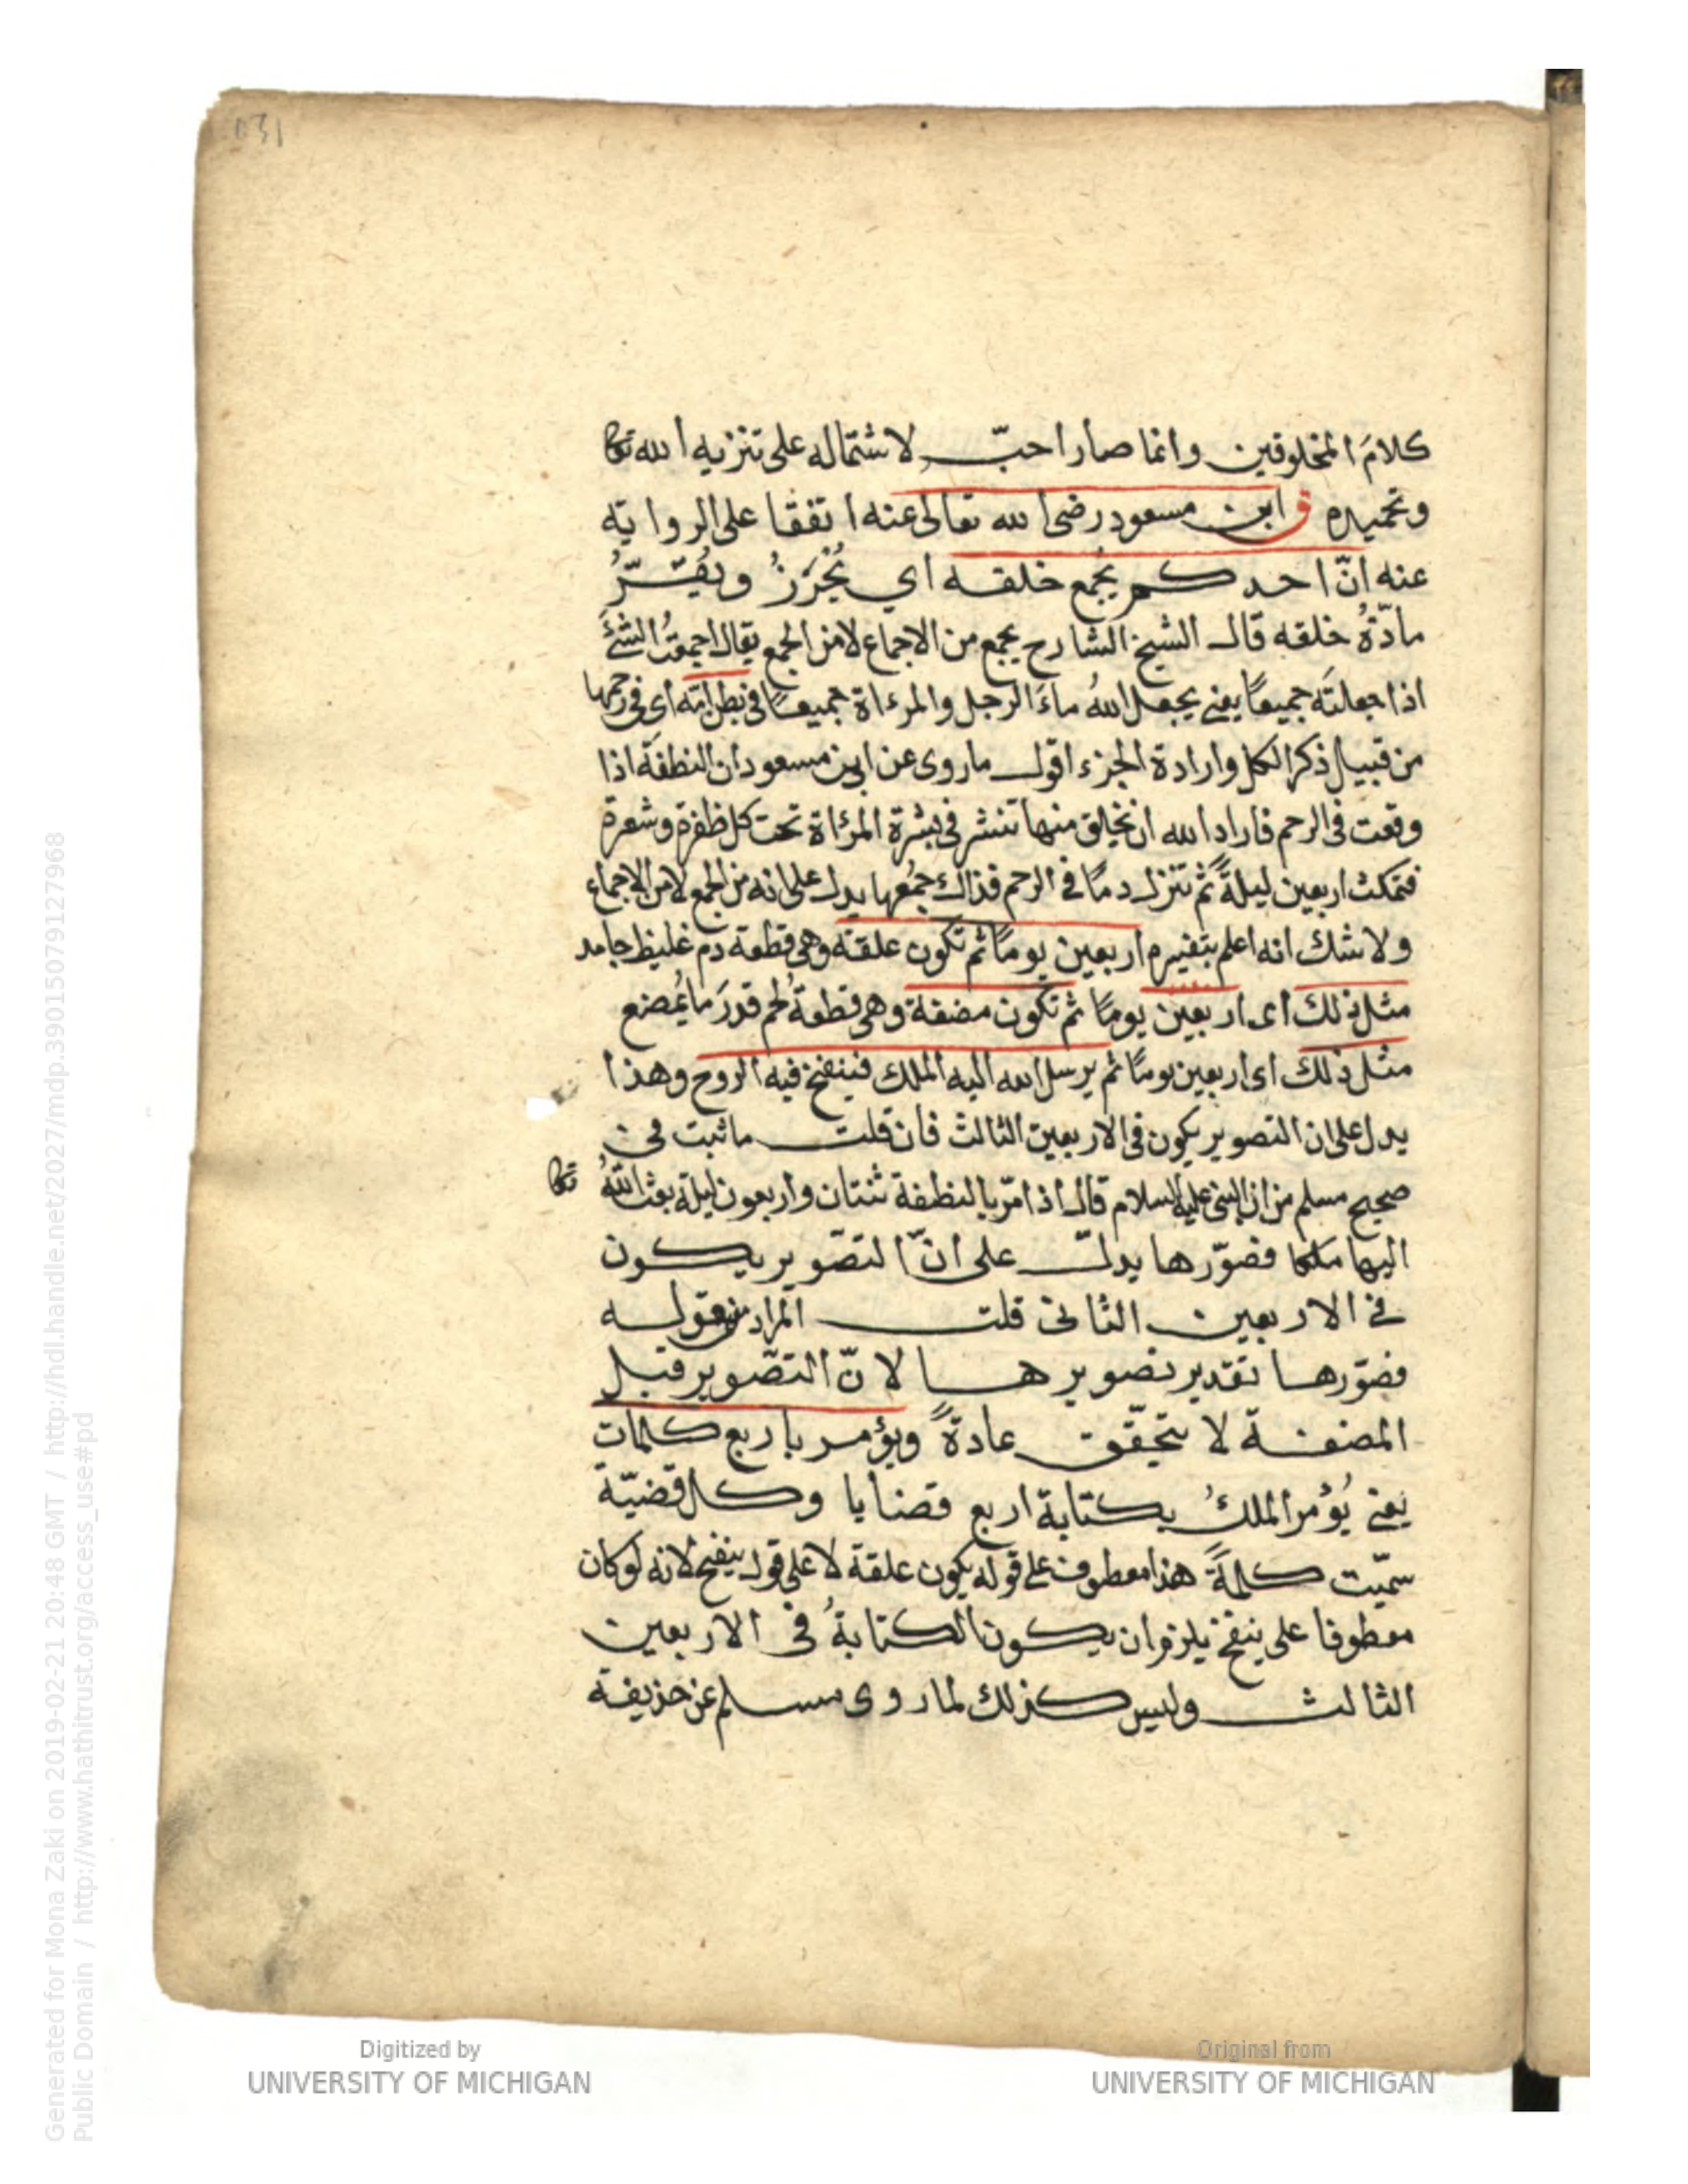 كلامَ المخلوقين وانما صار احبّ لاشتماله على تنزيه الله تعا
وتحميده ق ابن مسعود رضى الله تعالى عنه اتفقا على الرواية
عنه انّ احدكم يُجمع خلقه اي يُحْرَزُ ويُقَرّرُ
مادّةُ خلقه قال الشيخ الشارح يجمع من الاجماع لا من الجمع يقال اجمعتُ الشئَ
اذا جعلتَه جميعًا يعنى يجعل اللهُ ماءَ الرجل والمرءاة جميعًا فى بطن امّه اى فى رحمها
من قبيل ذكر الكل وارادة الجزء اقول ما روى عن ابن مسعود ان النطفة اذا
وقعت فى الرحم فاراد الله ان يخلق منها تنشر فى بشرة المرئاة تحت كل ظفرة وشعرة
فتمكث اربعين ليلةً ثم تنزل دمًا فى الرحم فذالك جَمْعها يدل على انه من الجمع لا من الاجماع
ولا شك انه اعلم بتفسيره اربعين يومًا ثم تكون علقة وهى قطعة دم غليظ جامد
مثل ذلك اى اربعين يومًا ثم تكون مضغة وهى قطعةُ لحم قدرَ ما يُمضغ
مثل ذلك اى اربعين يومًا ثم يرسل الله اليه الملك فينفخ فيه الروح وهذا
يدل على ان التصوير يكون فى الاربعين الثالث فان قلت ما ثبت فى
صحيح مسلم من ان النبى عليه السلام قال اذا مرّ بالنطفة ثنتان واربعون ليلة بعث اللهُ تعا
اليها ملكا فصوّرها يدلّ على انّ التصّوير يكون
فى الاربعين الثانى قلت المراد من قوله
فصوّرها تقدير تصويرها لانّ التصّوير قبل
المضغة لا يتحقّق عادةً ويؤمر باربع كلمات
يعنى يُؤمر الملكُ بكتابة اربع قضايا وكل قضيّة
سمّيت كلمةً هذا معطوف على قوله يكون علقة لا على قوله ينفخ لانه لو كان
معطوفا على ينفخ يلزم ان يكون الكتابةُ فى الاربعين
الثالث وليس كذلك لما روى مسلم عن حذيفة
Digitized by
UNIVERSITY OF MICHIGAN
Original from
UNIVERSITY OF MICHIGAN
Generated for Mona Zaki on 2019-02-21 20:48 GMT / http://hdl.handle.net/2027/mdp.39015079127968
Public Domain / http://www.hathitrust.org/access_use#pd